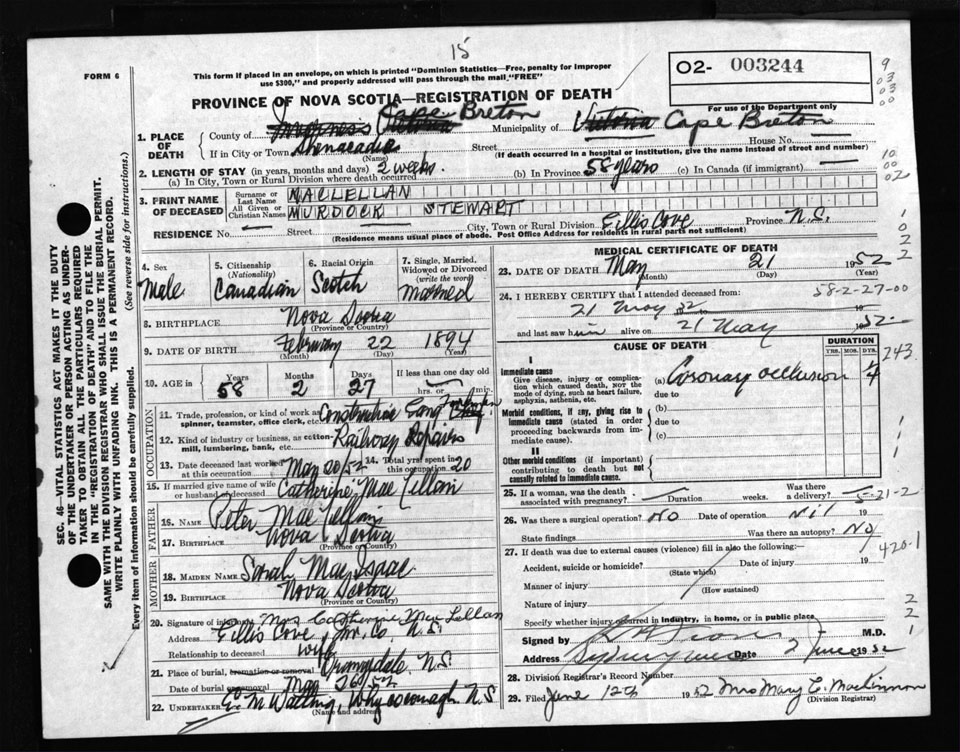 15
FORM 6
This form if placed in an envelope, on which is printed "Dominion Statistics—Free, penalty for improper
use $300," and properly addressed will pass through the mail "FREE"
O2- 003244
9
03
03
00
For use of the Department only
PROVINCE OF NOVA SCOTIA—REGISTRATION OF DEATH
1. PLACE OF DEATH
County of Inverness Victoria Cape Breton Municipality of Victoria Cape Breton
If in City or Town Shenacadie Street House No. —
(Name) (If death occurred in a hospital or institution, give the name instead of street and number)
2. LENGTH OF STAY (in years, months and days)
(a) In City, Town or Rural Division where death occurred 2 weeks. (b) In Province 58 years (c) In Canada (if immigrant) —
10
00
02
3. PRINT NAME OF DECEASED
Surname or Last Name MACLELLAN
All Given or Christian Names MURDOCK STEWART
RESIDENCE No. — Street — City, Town or Rural Division Eillis Cove Province N.S.
(Residence means usual place of abode. Post Office Address for residents in rural parts not sufficient)
1
0
2
2
SEC. 46—VITAL STATISTICS ACT MAKES IT THE DUTY
OF THE UNDERTAKER OR PERSON ACTING AS UNDER-
TAKER TO OBTAIN ALL THE PARTICULARS REQUIRED
IN THE "REGISTRATION OF DEATH" AND TO FILE THE
SAME WITH THE DIVISION REGISTRAR WHO SHALL ISSUE THE BURIAL PERMIT.
WRITE PLAINLY WITH UNFADING INK. THIS IS A PERMANENT RECORD.
Every item of information should be carefully supplied. (See reverse side for instructions.)
4. Sex Male
5. Citizenship (Nationality) Canadian
6. Racial Origin Scotch
7. Single, Married, Widowed or Divorced (write the word) Married
8. BIRTHPLACE Nova Scotia
(Province or Country)
9. DATE OF BIRTH February 22 1894
(Month) (Day) (Year)
10. AGE in Years 58 Months 2 Days 27 If less than one day
hrs. or min.
OCCUPATION
11. Trade, profession, or kind of work as spinner, teamster, office clerk, etc. Construction Gang
12. Kind of industry or business, as cotton-mill, lumbering, bank, etc. Railway Repairs
13. Date deceased last worked at this occupation May 20/52 14. Total yrs. spent in this occupation 20
15. If married give name of wife or husband of deceased Catherine MacLellan
FATHER
16. NAME Peter MacLellan
17. BIRTHPLACE Nova Scotia
(Province or Country)
MOTHER
18. MAIDEN NAME Sarah MacIsaac
19. BIRTHPLACE Nova Scotia
(Province or Country)
20. Signature of informant Mrs Catherine MacLellan
Address Eillis Cove, Inv. Co. N.S.
Relationship to deceased wife
21. Place of burial, cremation or removal Orangedale N.S.
Date of burial or removal May 26/52
22. UNDERTAKER Whycocomagh N.S
(Name and address)
MEDICAL CERTIFICATE OF DEATH
23. DATE OF DEATH May 21 1952
(Month) (Day) (Year)
58-2-27-00
24. I HEREBY CERTIFY that I attended deceased from:
21 May 52
and last saw him alive on 21 May 1952.
CAUSE OF DEATH
DURATION
YRS. MOS. DYS.
243
I
Immediate cause
Give disease, injury or complication which caused death, NOT the mode of dying, such as heart failure, asphyxia, asthenia, etc.
(a) Coronary occlusion
due to
Morbid conditions, if any, giving rise to immediate cause (stated in order proceeding backwards from immediate cause).
(b)
due to
(c)
1
1
1
II
Other morbid conditions (if important) contributing to death but not causally related to immediate cause.
25. If a woman, was the death associated with pregnancy? — Duration weeks. Was there a delivery? —
5-21-2
26. Was there a surgical operation? NO Date of operation Nil 19
State findings Was there an autopsy? NO
420-1
27. If death was due to external causes (violence) fill in also the following:—
Accident, suicide or homicide? Date of injury 19
(State which)
Manner of injury
(How sustained)
Nature of injury
Specify whether injury occurred in industry, in home, or in public place
2
2
1
Signed by M.D.
Address Sydney Date 2 June 1952
28. Division Registrar's Record Number
29. Filed June 12th 1952 Mrs Mary C. MacKinnon
(Division Registrar)